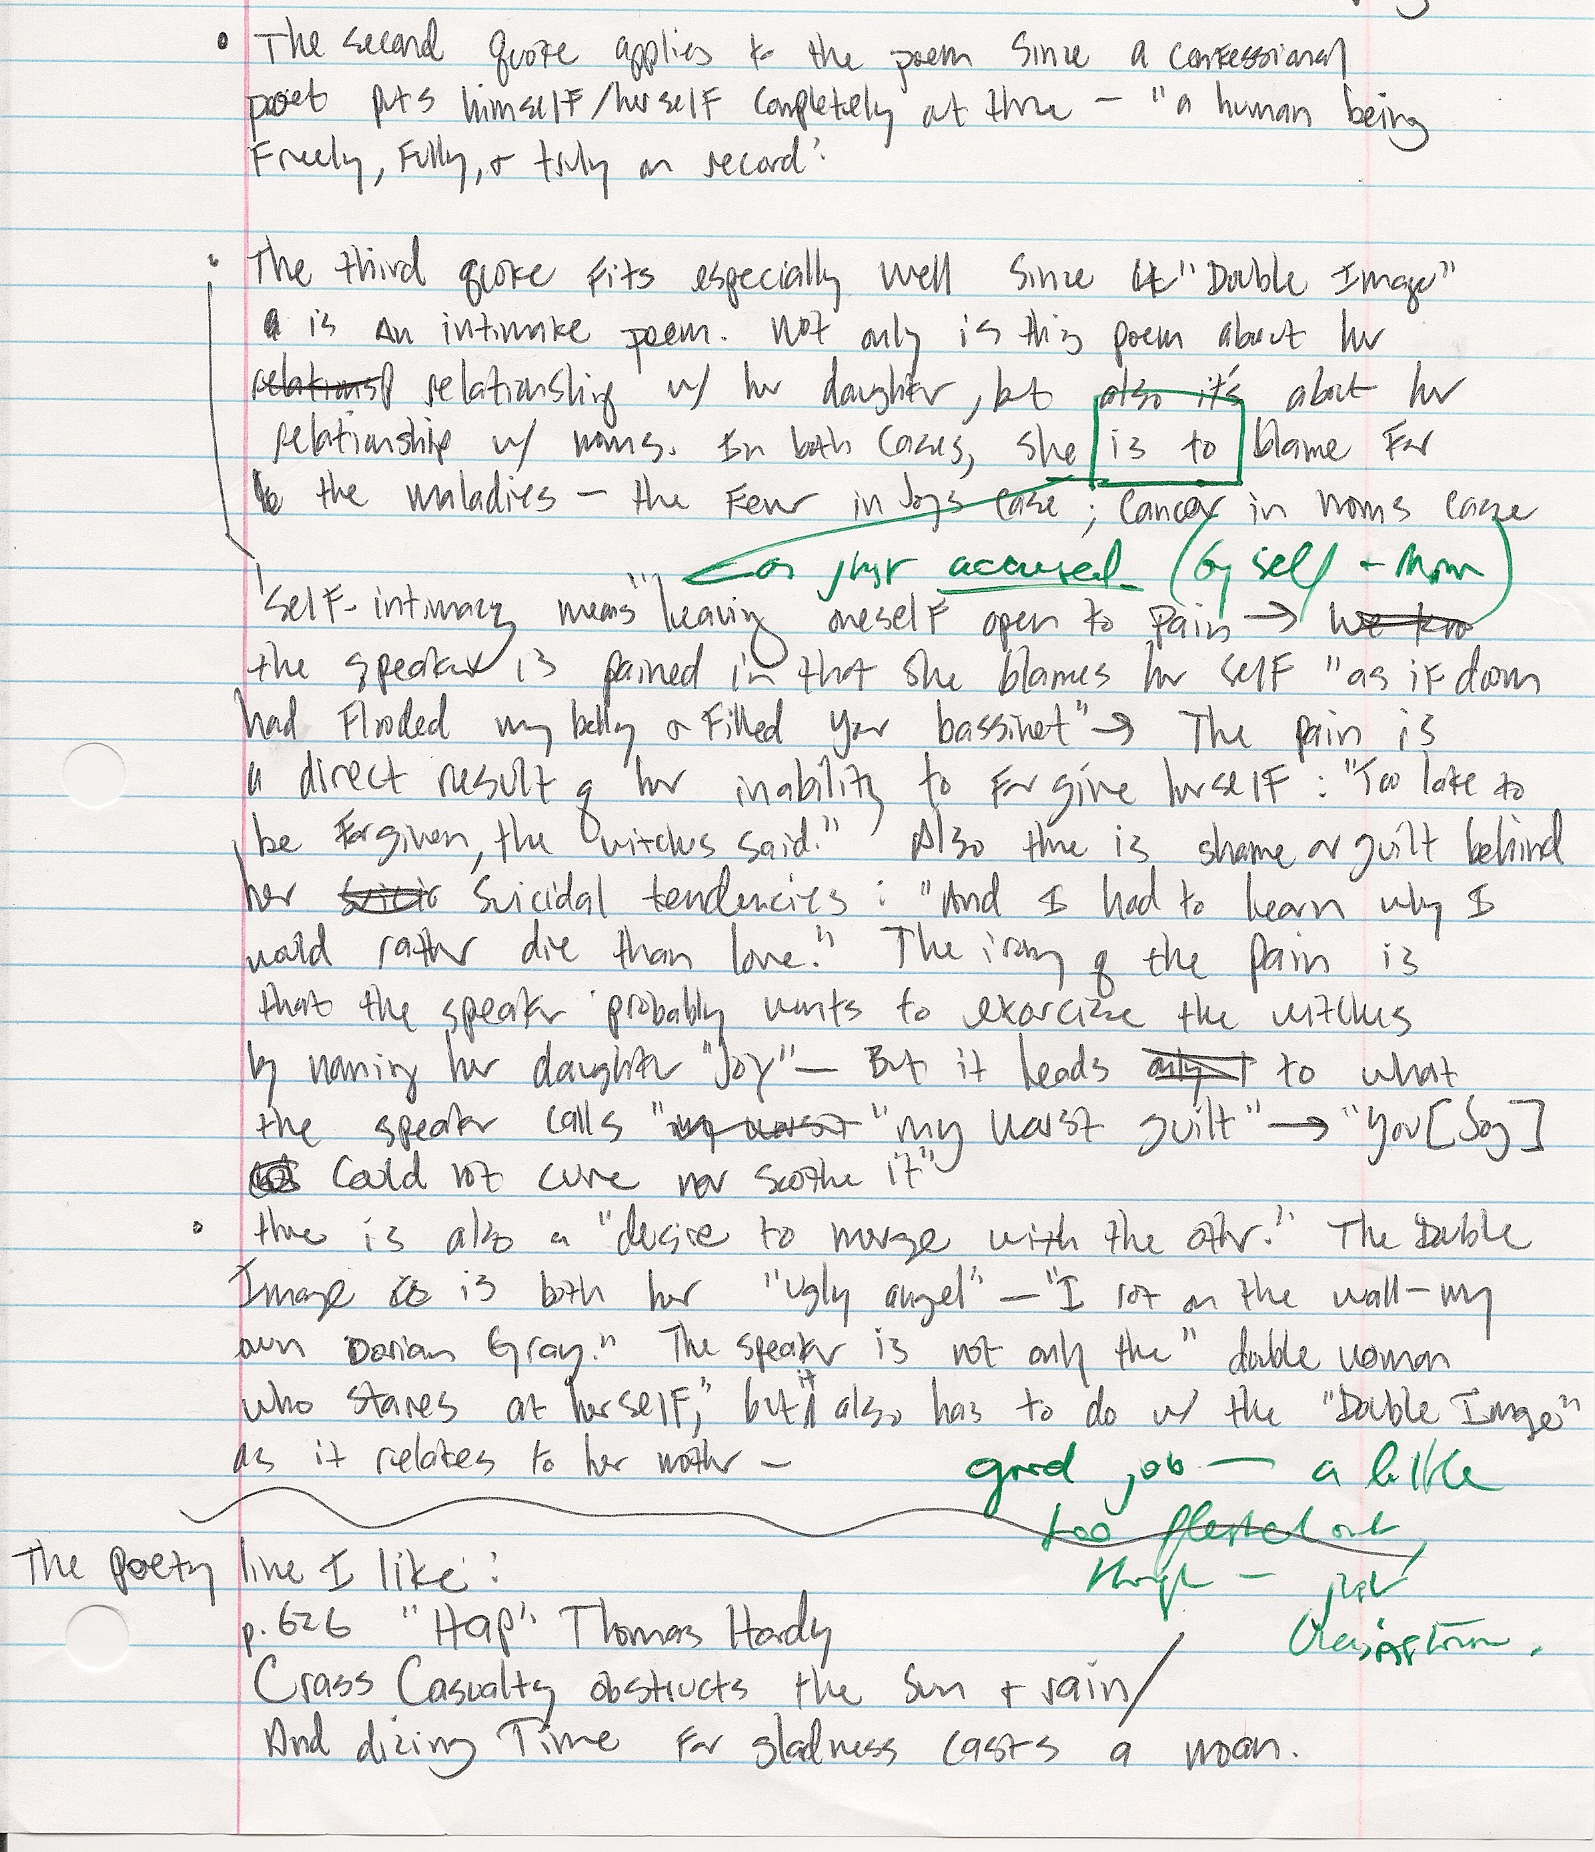 • The second quote applies to the poem since a confessional
poet puts himself/herself completely out there — "a human being
freely, fully, + truly on record".
• The third quote fits especially well since "Double Image"
is an intimate poem. Not only is this poem about her
relationship w/ her daughter, but also it's about her
relationship w/ moms. In both cases, she is to blame for
the maladies — the fever in Joys case; cancer in moms case
or just accused (by self + mom)
"Self-intimacy" means "leaving oneself open to pain →
the speaker is pained in that she blames her self "as if doom
had flooded my belly + filled your bassinet" → The pain is
a direct result of her inability to forgive herself: "Too late to
be forgiven, the witches said." Also there is shame or guilt behind
her suicidal tendencies: "And I had to learn why I
would rather die than love." The irony of the pain is
that the speaker probably wants to exorcize the witches
by naming her daughter "Joy" — But it leads to what
the speaker calls "my worst guilt" → "you [Joy]
could not cure nor soothe it"
• there is also a "desire to merge with the other." The Double
Image is both her "ugly angel" — "I rot on the wall — my
own Dorian Gray." The speaker is not only the "double woman
who stares at herself," but it also has to do w/ the "Double Image"
as it relates to her mother —
good job — a little
too fleshed out
though — just
brainstorm.
The poetry line I like:
p. 626 "Hap" Thomas Hardy
Crass Casualty obstructs the sun + rain/
And dicing Time for gladness casts a moan.